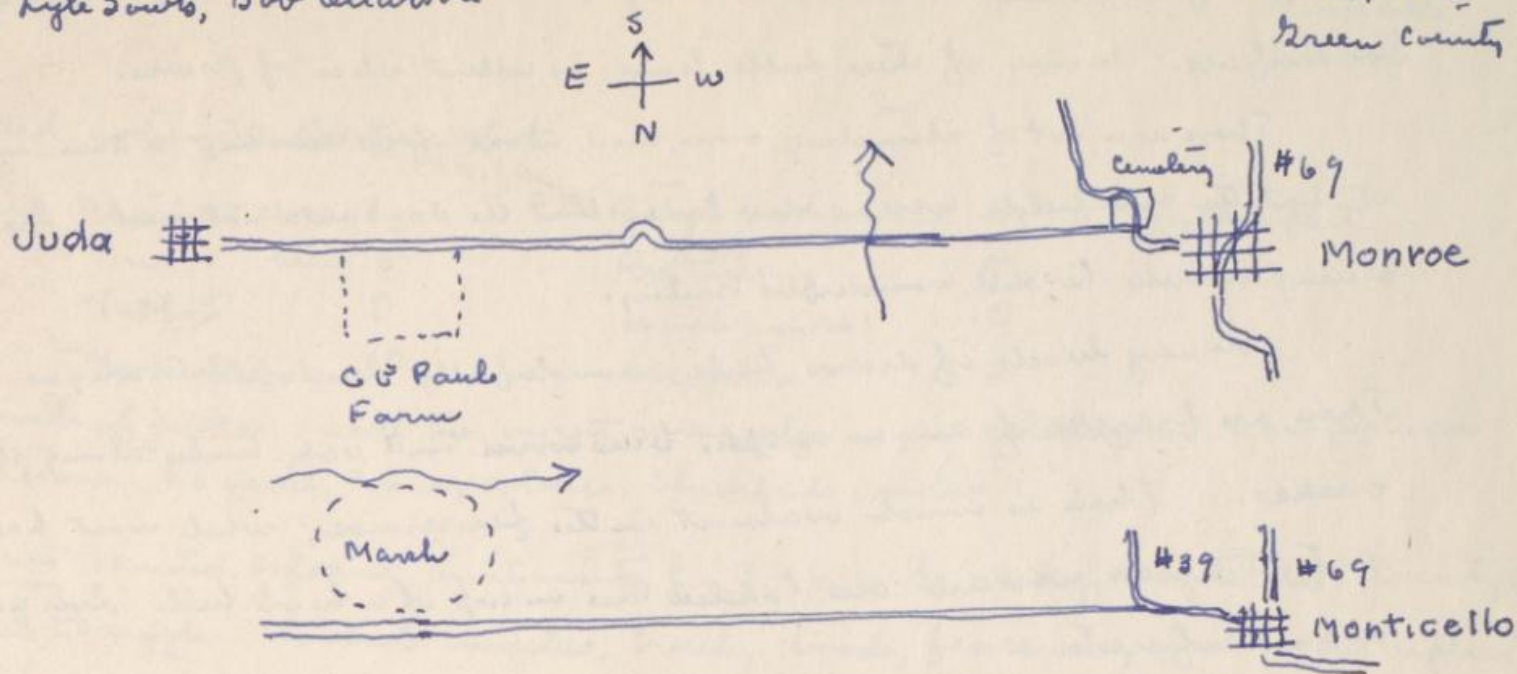 Lyle Sowls, Bob
Green County
S
E W
N
Cemetery
#69
Juda
Monroe
C E Paul
Farm
Marsh
#39
#69
Monticello